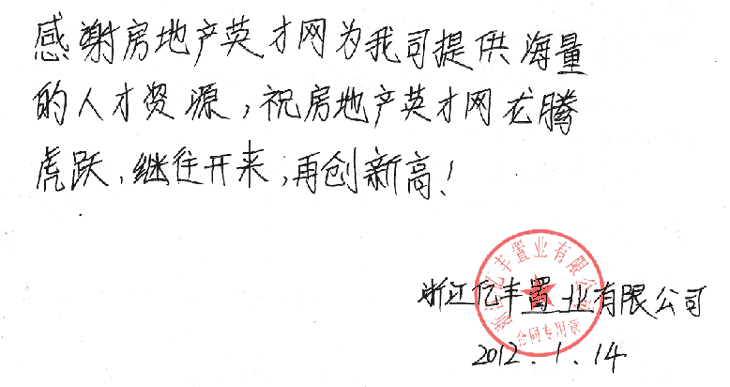 感谢房地产英才网为我司提供海量
的人才资源，祝房地产英才网龙腾
虎跃、继往开来，再创新高！
浙江亿丰置业有限公司
浙江亿丰置业有限公司
合同专用章
2012.1.14